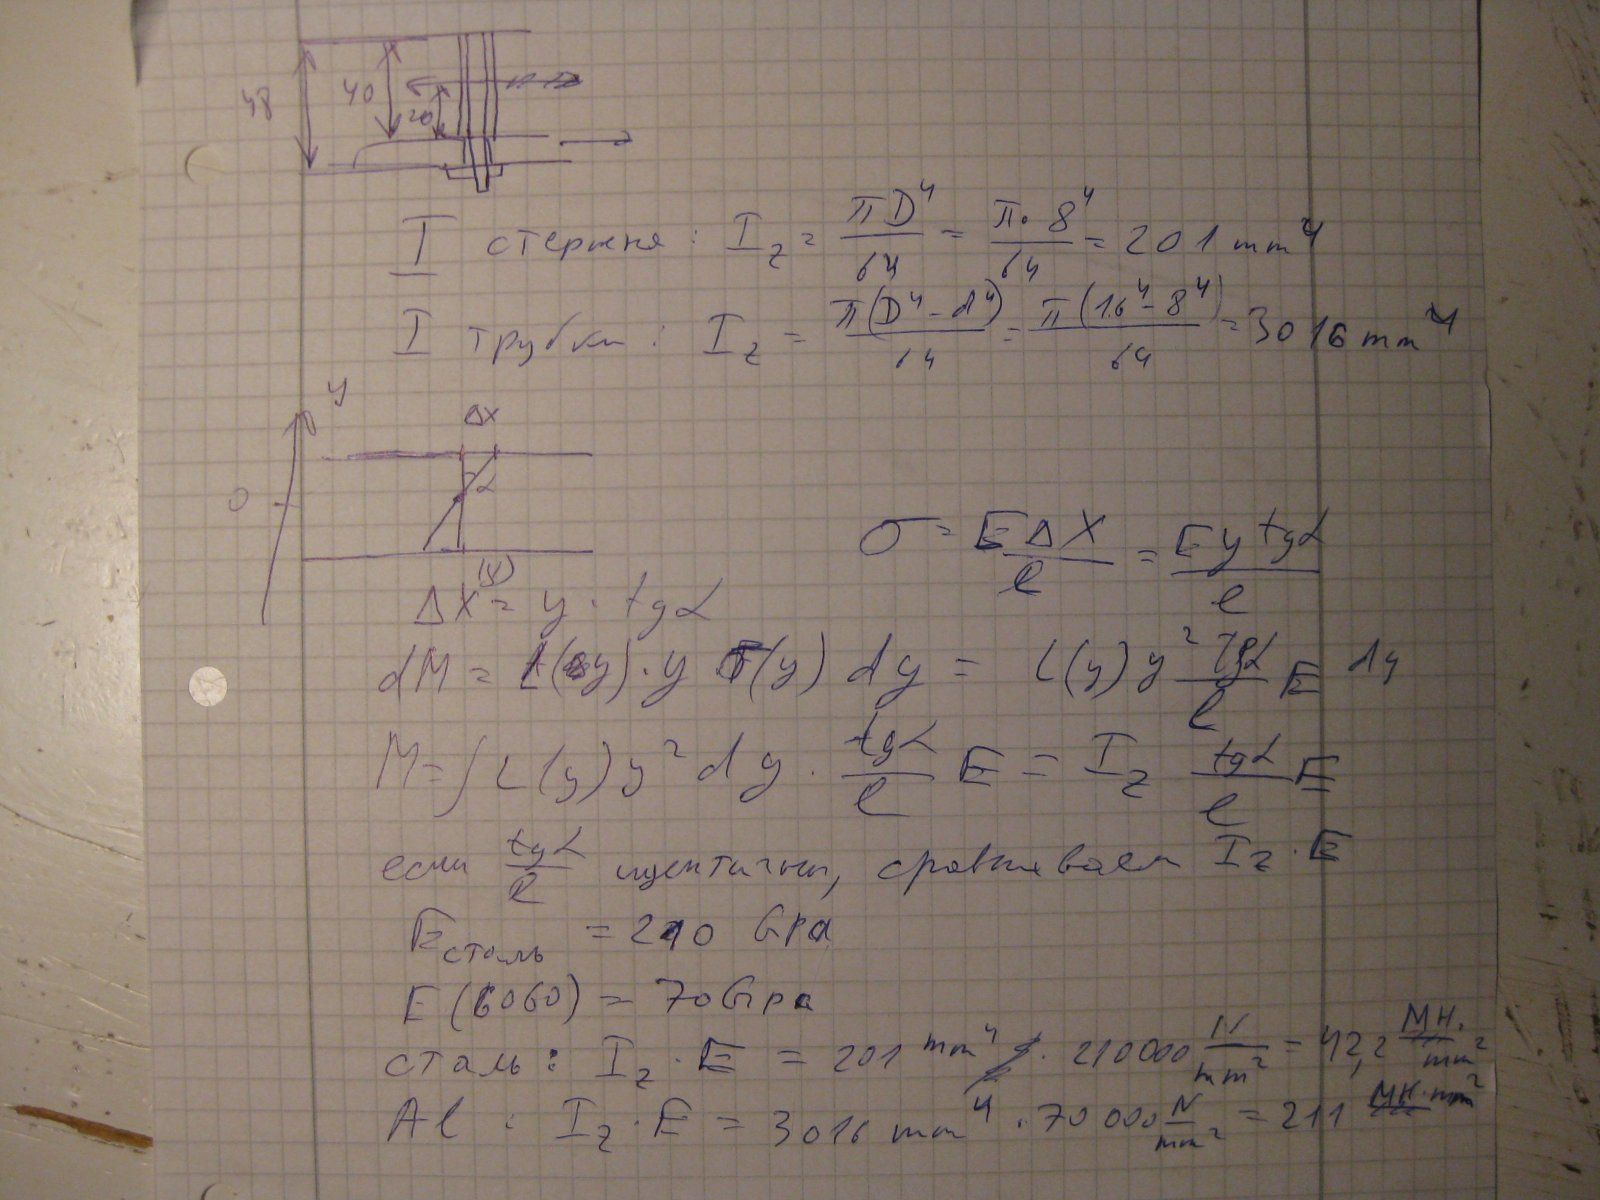 48
40
20
I стержня: I_z = πD⁴/64 = π·8⁴/64 = 201 mm⁴
I трубки: I_z = π(D⁴-d⁴)/64 = π(16⁴-8⁴)/64 = 3016 mm⁴
y
Δx
0
α
σ = EΔX/l = Ey tgα/l
ΔX(y) = y·tgα
dM = L(y)·y σ(y) dy = L(y)y² tgα/l E dy
M = ∫L(y)y²dy · tgα/l E = I_z tgα/l E
если tgα/l идентичны, сравниваем I_z·E
E сталь = 210 Gpa
E (6060) = 70 Gpa
сталь: I_z·E = 201 mm⁴ · 210000 N/mm² = 42,2 МН·mm²
Al: I_z·E = 3016 mm⁴ · 70000 N/mm² = 211 МН·mm²